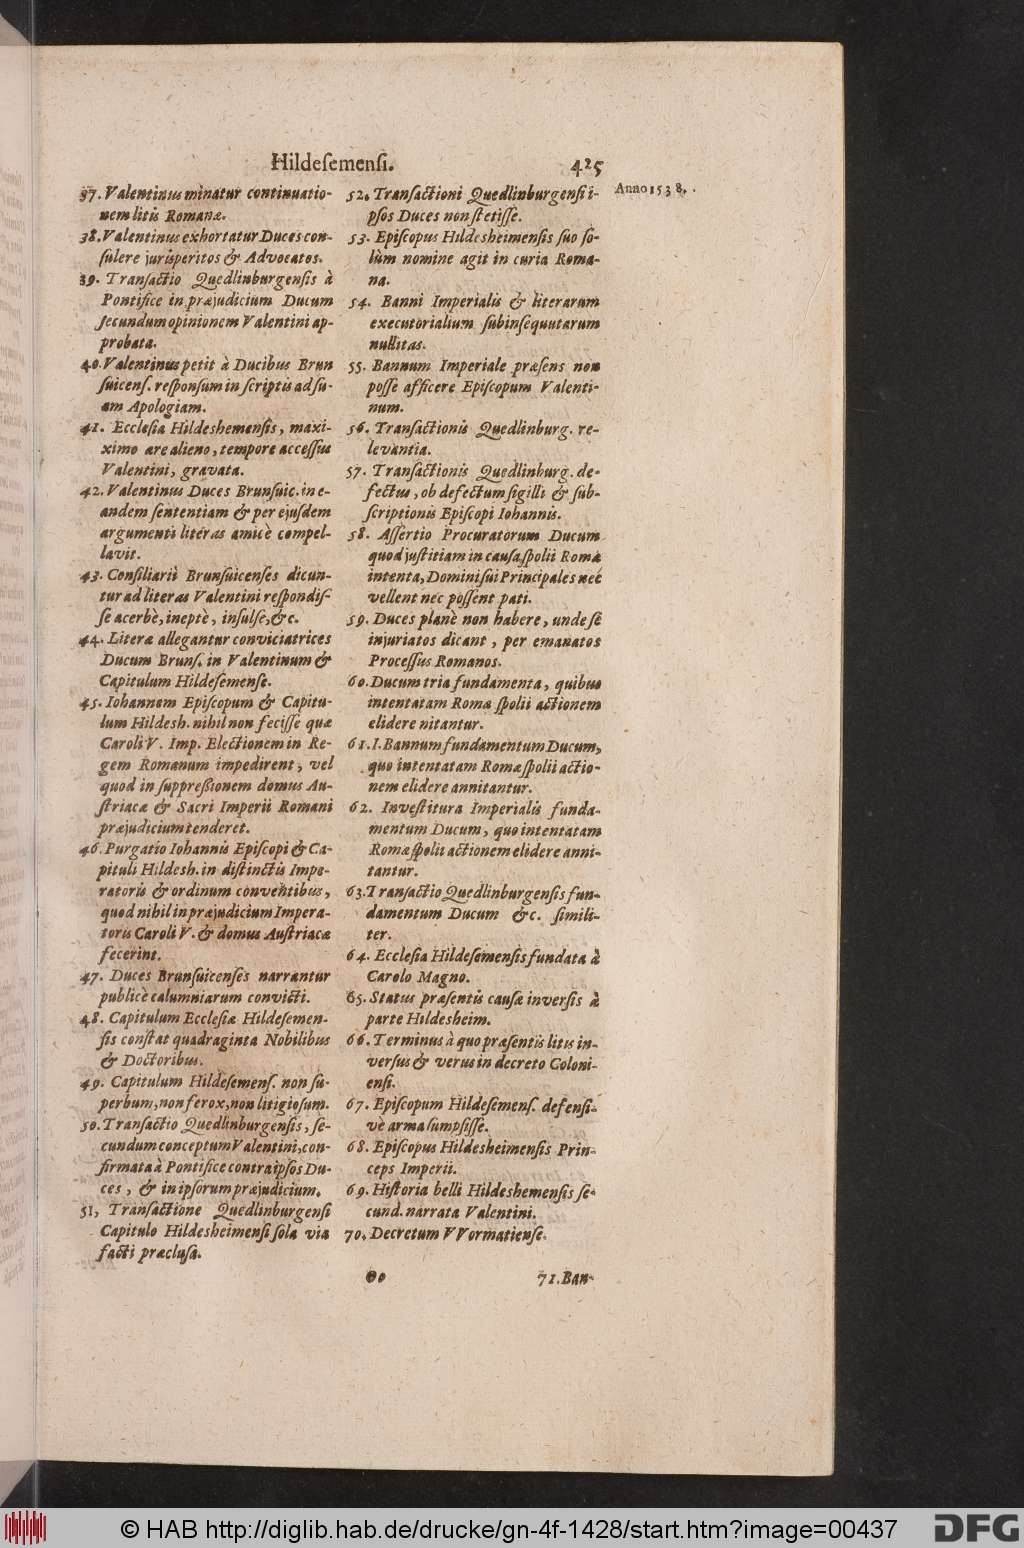 Hildeſemenſi. 425
Anno 1538.
37. Valentinus minatur continuatio-
nem litis Romanæ.
38. Valentinus exhortatur Duces con-
ſulere jurisperitos & Advocatos.
39. Tranſactio Quedlinburgenſis à
Pontifice in præjudicium Ducum
ſecundum opinionem Valentini ap-
probata.
40. Valentinus petit à Ducibus Brun
ſuicenſ. reſponſum in ſcriptis ad ſu-
am Apologiam.
41. Eccleſia Hildeshemenſis, maxi-
ximo ære alieno, tempore acceſſus
Valentini, gravata.
42. Valentinus Duces Brunſuic. in e-
andem ſententiam & per ejuſdem
argumenti literas amicè compel-
lavit.
43. Conſiliarii Brunſuicenſes dicun-
tur ad literas Valentini reſpondiſ-
ſe acerbè, ineptè, inſulſe, &c.
44. Literæ allegantur conviciatrices
Ducum Brunſ. in Valentinum &
Capitulum Hildeſemenſe.
45. Iohannem Epiſcopum & Capitu-
lum Hildesh. nihil non feciſſe quæ
Caroli V. Imp. Electionem in Re-
gem Romanum impedirent, vel
quod in ſuppreßionem domus Au-
ſtriacæ & Sacri Imperii Romani
præjudicium tenderet.
46. Purgatio Iohannis Epiſcopi & Ca-
pituli Hildesh. in diſtinctis Impe-
ratoris & ordinum conventibus,
quod nihil in præjudicium Impera-
toris Caroli V. & domus Auſtriacæ
fecerint.
47. Duces Brunſuicenſes narrantur
publicè calumniarum convicti.
48. Capitulum Eccleſiæ Hildeſemen-
ſis conſtat quadraginta Nobilibus
& Doctoribus.
49. Capitulum Hildeſemenſ. non ſu-
perbum, non ferox, non litigioſum.
50. Tranſactio Quedlinburgenſis, ſe-
cundum conceptum Valentini, con-
firmata à Pontifice contra ipſos Du-
ces, & in ipſorum præjudicium.
51, Tranſactione Quedlinburgenſi
Capitulo Hildesheimenſi ſola via
facti præcluſa.
52. Tranſactioni Quedlinburgenſi i-
pſos Duces non ſtetiſſe.
53. Epiſcopus Hildesheimenſis ſuo ſo-
lùm nomine agit in curia Roma-
na.
54. Banni Imperialis & literarum
executorialium ſubinſequutarum
nullitas.
55. Bannum Imperiale præſens non
poſſe afficere Epiſcopum Valenti-
num.
56. Tranſactionis Quedlinburg. re-
levantia.
57. Tranſactionis Quedlinburg. de-
fectus, ob defectum ſigilli & ſub-
ſcriptionis Epiſcopi Iohannis.
58. Aſſertio Procuratorum Ducum
quod juſtitiam in cauſa ſpolii Romæ
intenta, Domini ſui Principales nec
vellent nec poſſent pati.
59. Duces planè non habere, unde ſe
injuriatos dicant, per emanatos
Proceſſus Romanos.
60. Ducum tria fundamenta, quibus
intentatam Romæ ſpolii actionem
elidere nitantur.
61. I. Bannum fundamentum Ducum,
quo intentatam Romæ ſpolii actio-
nem elidere annitantur.
62. Inveſtitura Imperialis funda-
mentum Ducum, quo intentatam
Romæ ſpolii actionem elidere anni-
tantur.
63. Tranſactio Quedlinburgenſis fun-
damentum Ducum &c. ſimili-
ter.
64. Eccleſia Hildeſemenſis fundata à
Carolo Magno.
65. Status præſentis cauſæ inverſis à
parte Hildesheim.
66. Terminus à quo præſentis litis in-
verſus & verus in decreto Coloni-
enſi.
67. Epiſcopum Hildeſemenſ. defenſi-
vè arma ſumpſiſſe.
68. Epiſcopus Hildesheimenſis Prin-
ceps Imperii.
69. Hiſtoria belli Hildeshemenſis ſe-
cund. narrata Valentini.
70. Decretum VVormatienſe.
Oo 71. Ban-
© HAB http://diglib.hab.de/drucke/gn-4f-1428/start.htm?image=00437
DFG